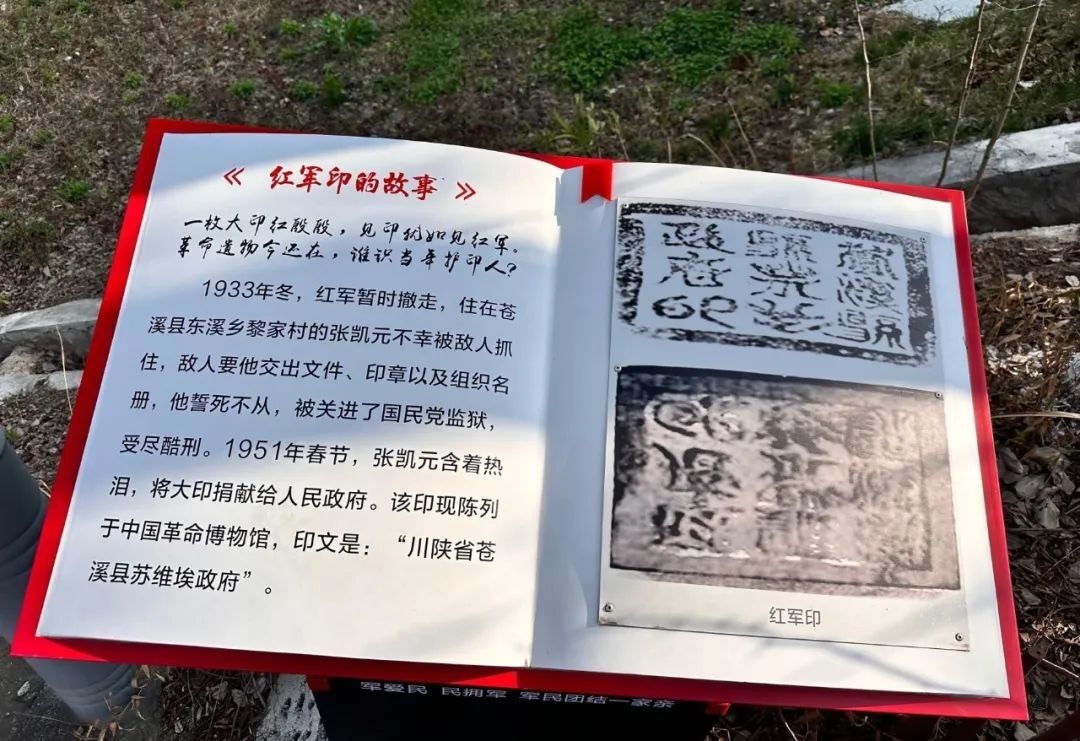 《 红军印的故事 》
一枚大印红殷殷，见印犹如见红军。
革命遗物今还在，谁识当年护印人？
1933年冬，红军暂时撤走，住在苍
溪县东溪乡黎家村的张凯元不幸被敌人抓
住，敌人要他交出文件、印章以及组织名
册，他誓死不从，被关进了国民党监狱，
受尽酷刑。1951年春节，张凯元含着热
泪，将大印捐献给人民政府。该印现陈列
于中国革命博物馆，印文是：“川陕省苍
溪县苏维埃政府”。
红军印
军爱民 民拥军 军民团结一家亲